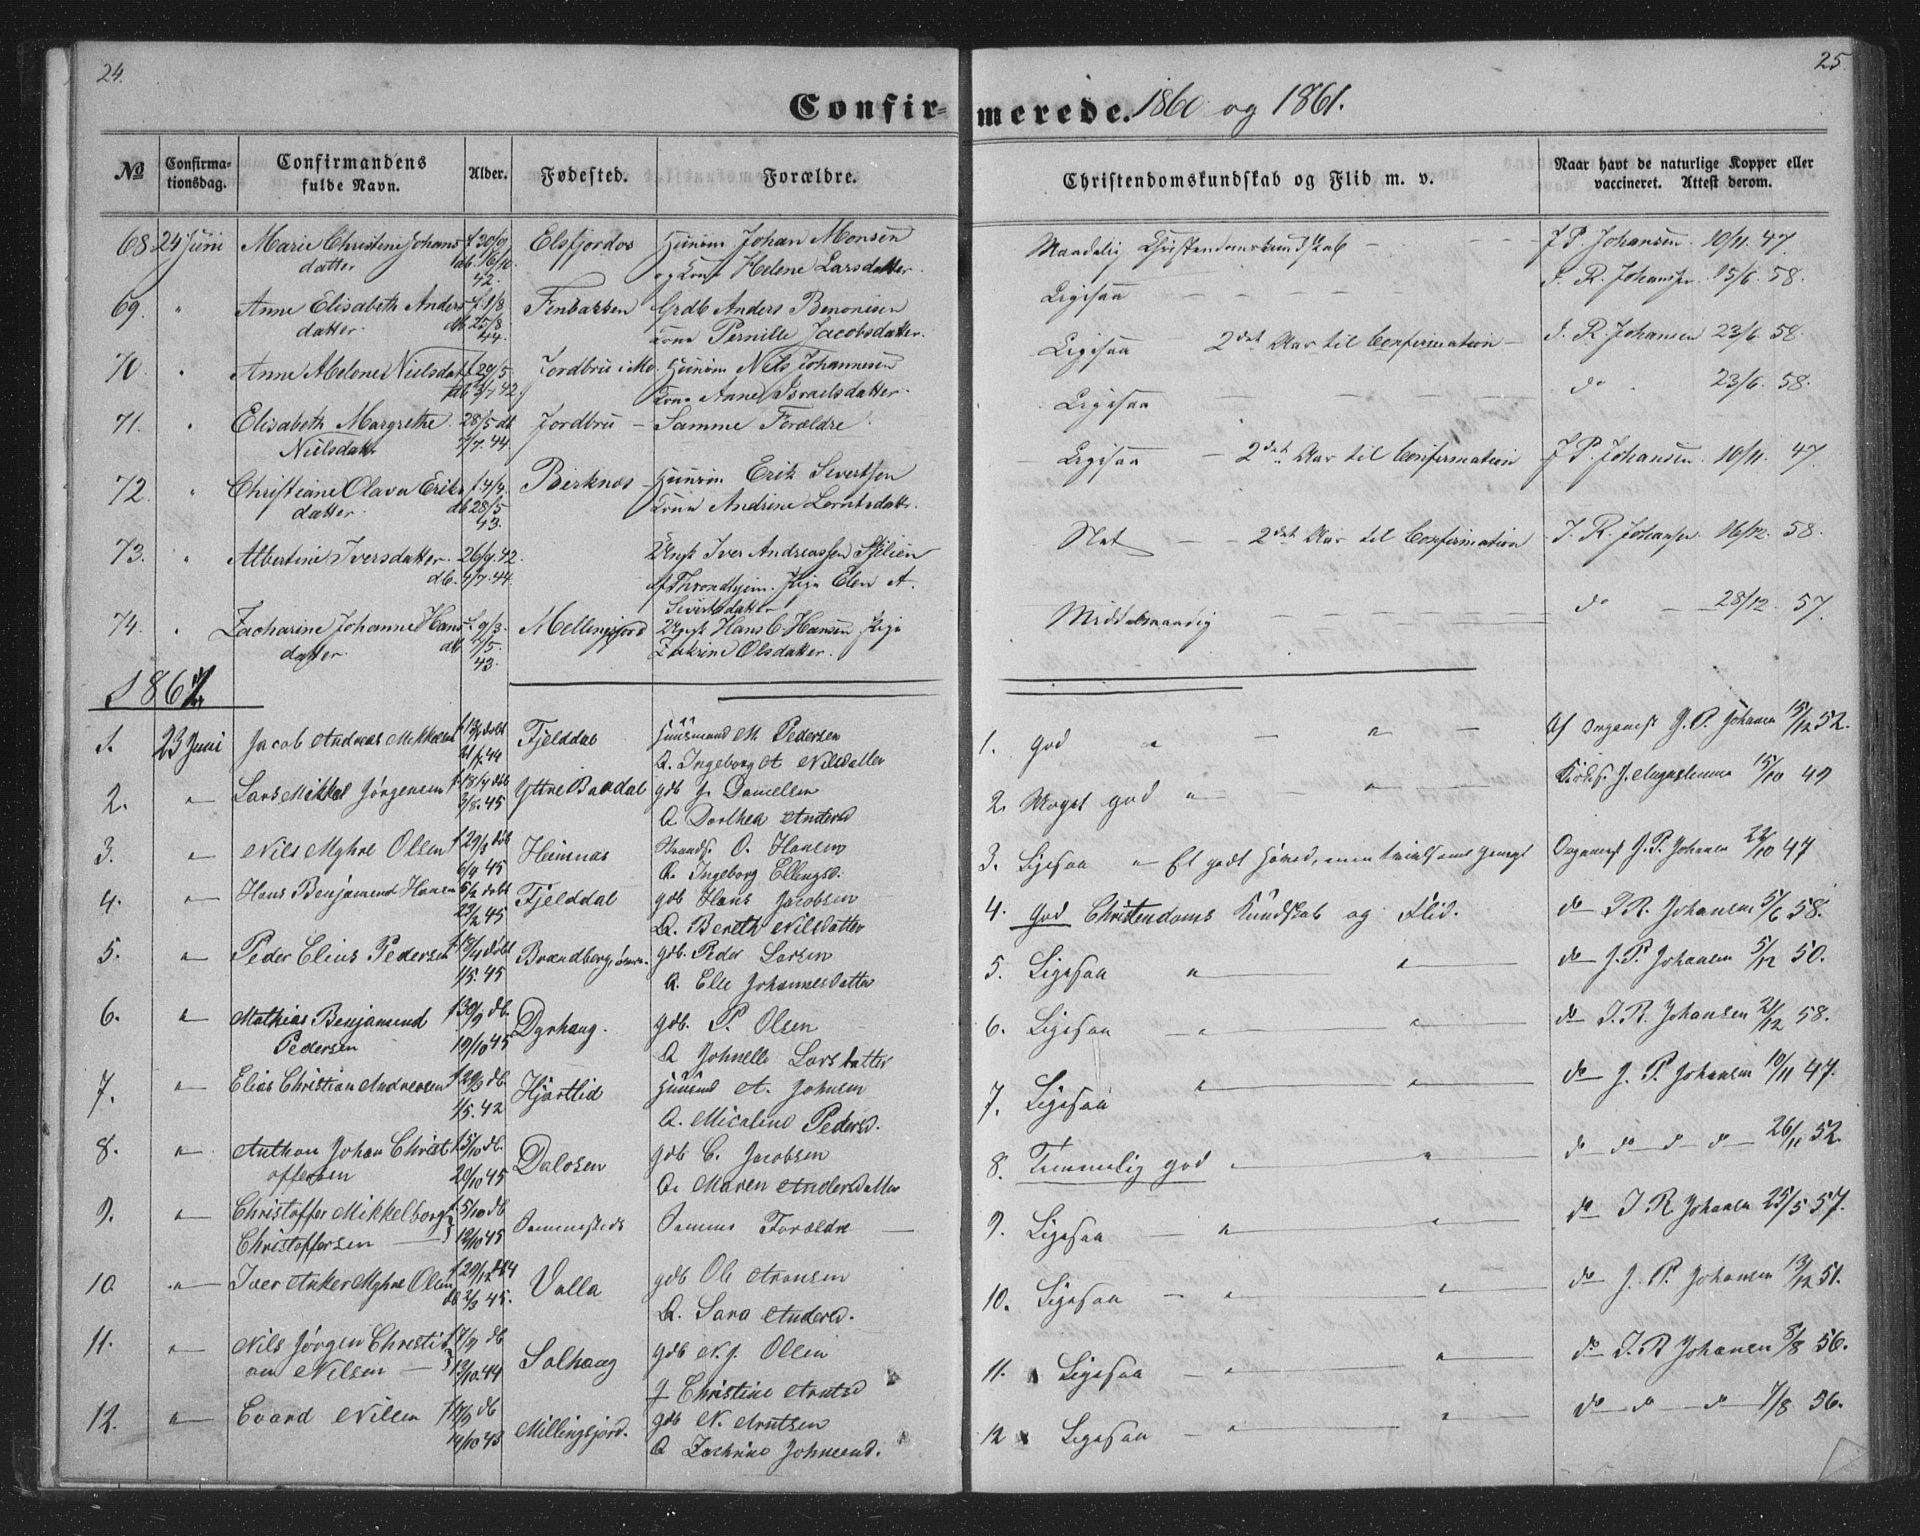 24.
25.
Confir- merede. 1860 og 1861.
No Confirmationsdag. Confirmandens fulde Navn. Alder. Fødested. Forældre. Christendomskundskab og Flid m. v. Naar havt de naturlige Kopper eller vaccineret. Attest derom.
68. 24 Juni Marie Christine Johans f 30/9 Elsfjordos Huusm Johan Monsen Maadelig Christendomskundskab J P. Johansen 10/11. 47.
datter db. 16/10. og Kone Helene Larsdatter.
42.
69. " Anne Elisabeth Anders f. 1/8 Finbakken Grdb Anders Benonisen Ligesaa J. R. Johansen 15/6. 58.
datter. db 25/8 Kone Pernille Jacobsdatter.
44.
70 " Anne Melene Nielsdat f 29/5 Jordbru i Mo. Huusm Nils Johannesen Ligesaa - 2det Aar til Confirmation - J. R. Johansen 23/6. 58.
db 3/7 42. Kone Anne Israelsdatter.
71. " Elisabeth Margrethe 28/5 db Jordbru - Samme Forældre. Ligesaa do 23/6. 58.
Nielsdatt 7/7. 44.
72. " Christiane Olava Eriks f. 4/3. Birknæs - Huusm Erik Sivertsen Ligesaa - 2det Aar til Confirmation J P. Johansen. 10/11. 47.
datter. db 28/5 Kone Andrine Lorntsdattr.
43.
73. " Albertine Iversdatter. 26/9. 42. Ungk Iver Andreassen Slat - - 2det Aar til Confirmation J. R. Johansen 16/12. 58.
db. 4/7. 44. af Throndhjem. Pige Elen A.
Sivertsdatter
74. " Zacharine Johanne Hans f. 9/3. Mellingsfjord Ungk Hans C. Hansen Pige Middelmaadig do 28/12. 57.
datter. db 7/5. Zakrine Olsdatter.
43.
1861
1. 23 Juni Jacob Andreas Mikkelsen f 13/2 døbt Fjelddal Huusmand M. Pedersen 1. god " - " - Af Organist J. P. Johansen 15/12 52.
31/7. 44 Q. Ingeborg A Nilsdatter
2. " Lars Mikkel Jørgensen f 18/7 døb Yttre Baadal gdb J. Danielsen 2. Meget god " - " - 15/10 49
3/8. 45 Q. Dorthea Andersd
3. " Nils Myhre Olsen f 29/3 døb Heimnæs O. Hansen 3. Ligesaa " Et godt Hoved, men Organist J. P. Johansen 22/10 47
6/9 45 Q. Ingeborg Ellingsd.
4. " Hans Benjamend Hansen 5/2 døbt Fjelddal gdb Hans Jacobsen 4. god Christendoms Kundskab og Flid. do J. R. Johansen 5/6 58.
27/2 45 Q. Bereth Nilsdatter
5. " Peder Elius Pedersen f 18/4 døbt gdb. Peder Larsen 5. Ligesaa " " do J. P. Johansen 5/12 50.
1/5. 45 Q. Elle Johannesdatter
6. " Mathias Benjamend f 30/9 db. Dyrhaug. gdb. P. Olsen 6. Ligesaa " " do J. R. Johansen 2/12 58.
Pedersen 19/10 45 Q Johnelle Larsdatter
7. " Elias Christian Andreasen f 20/3 db. Hjortlid Huusmd A. Johnsen 7. Ligesaa " " do J. P. Johansen 10/11 47.
1/5. 42 Q. Micaline Pedersd.
8. " Anthon Johan Christ f 5/10 db. Dalosen gdb C. Jacobsen 8. Temmelig god " " do do do do 26/11 52.
offersen 20/10 45 Q. Maren Andersdatter
9. " Christoffer Mikkelborg f 5/10 db Sammesteds Samme Forældre 9. Ligesaa " " do J. R Johansen 25/5 57.
Christoffersen 12/10 45
10. " Iver Anker Myhre Olsen f 29/12 44 Valla gdb Ole Aronsen 10. Ligesaa " " do J. P. Johansen 13/12 51.
db 2/3 45. Q. Sara Andersd.
11. " Nils Jørgen Christi f 7/9 db Solhaug gdb N. J. Olsen 11. Ligesaa " " do J. R Johansen 8/8 56.
an Nilsen 13/10. 44 q Christine Arntsd
12. " Evard Nilsen f 17/9 db Millingsfjord. gdb N. Arntsen 12 Ligesaa " " do do do 7/8 56.
14/10 45 Q Zachrine Johnsend.